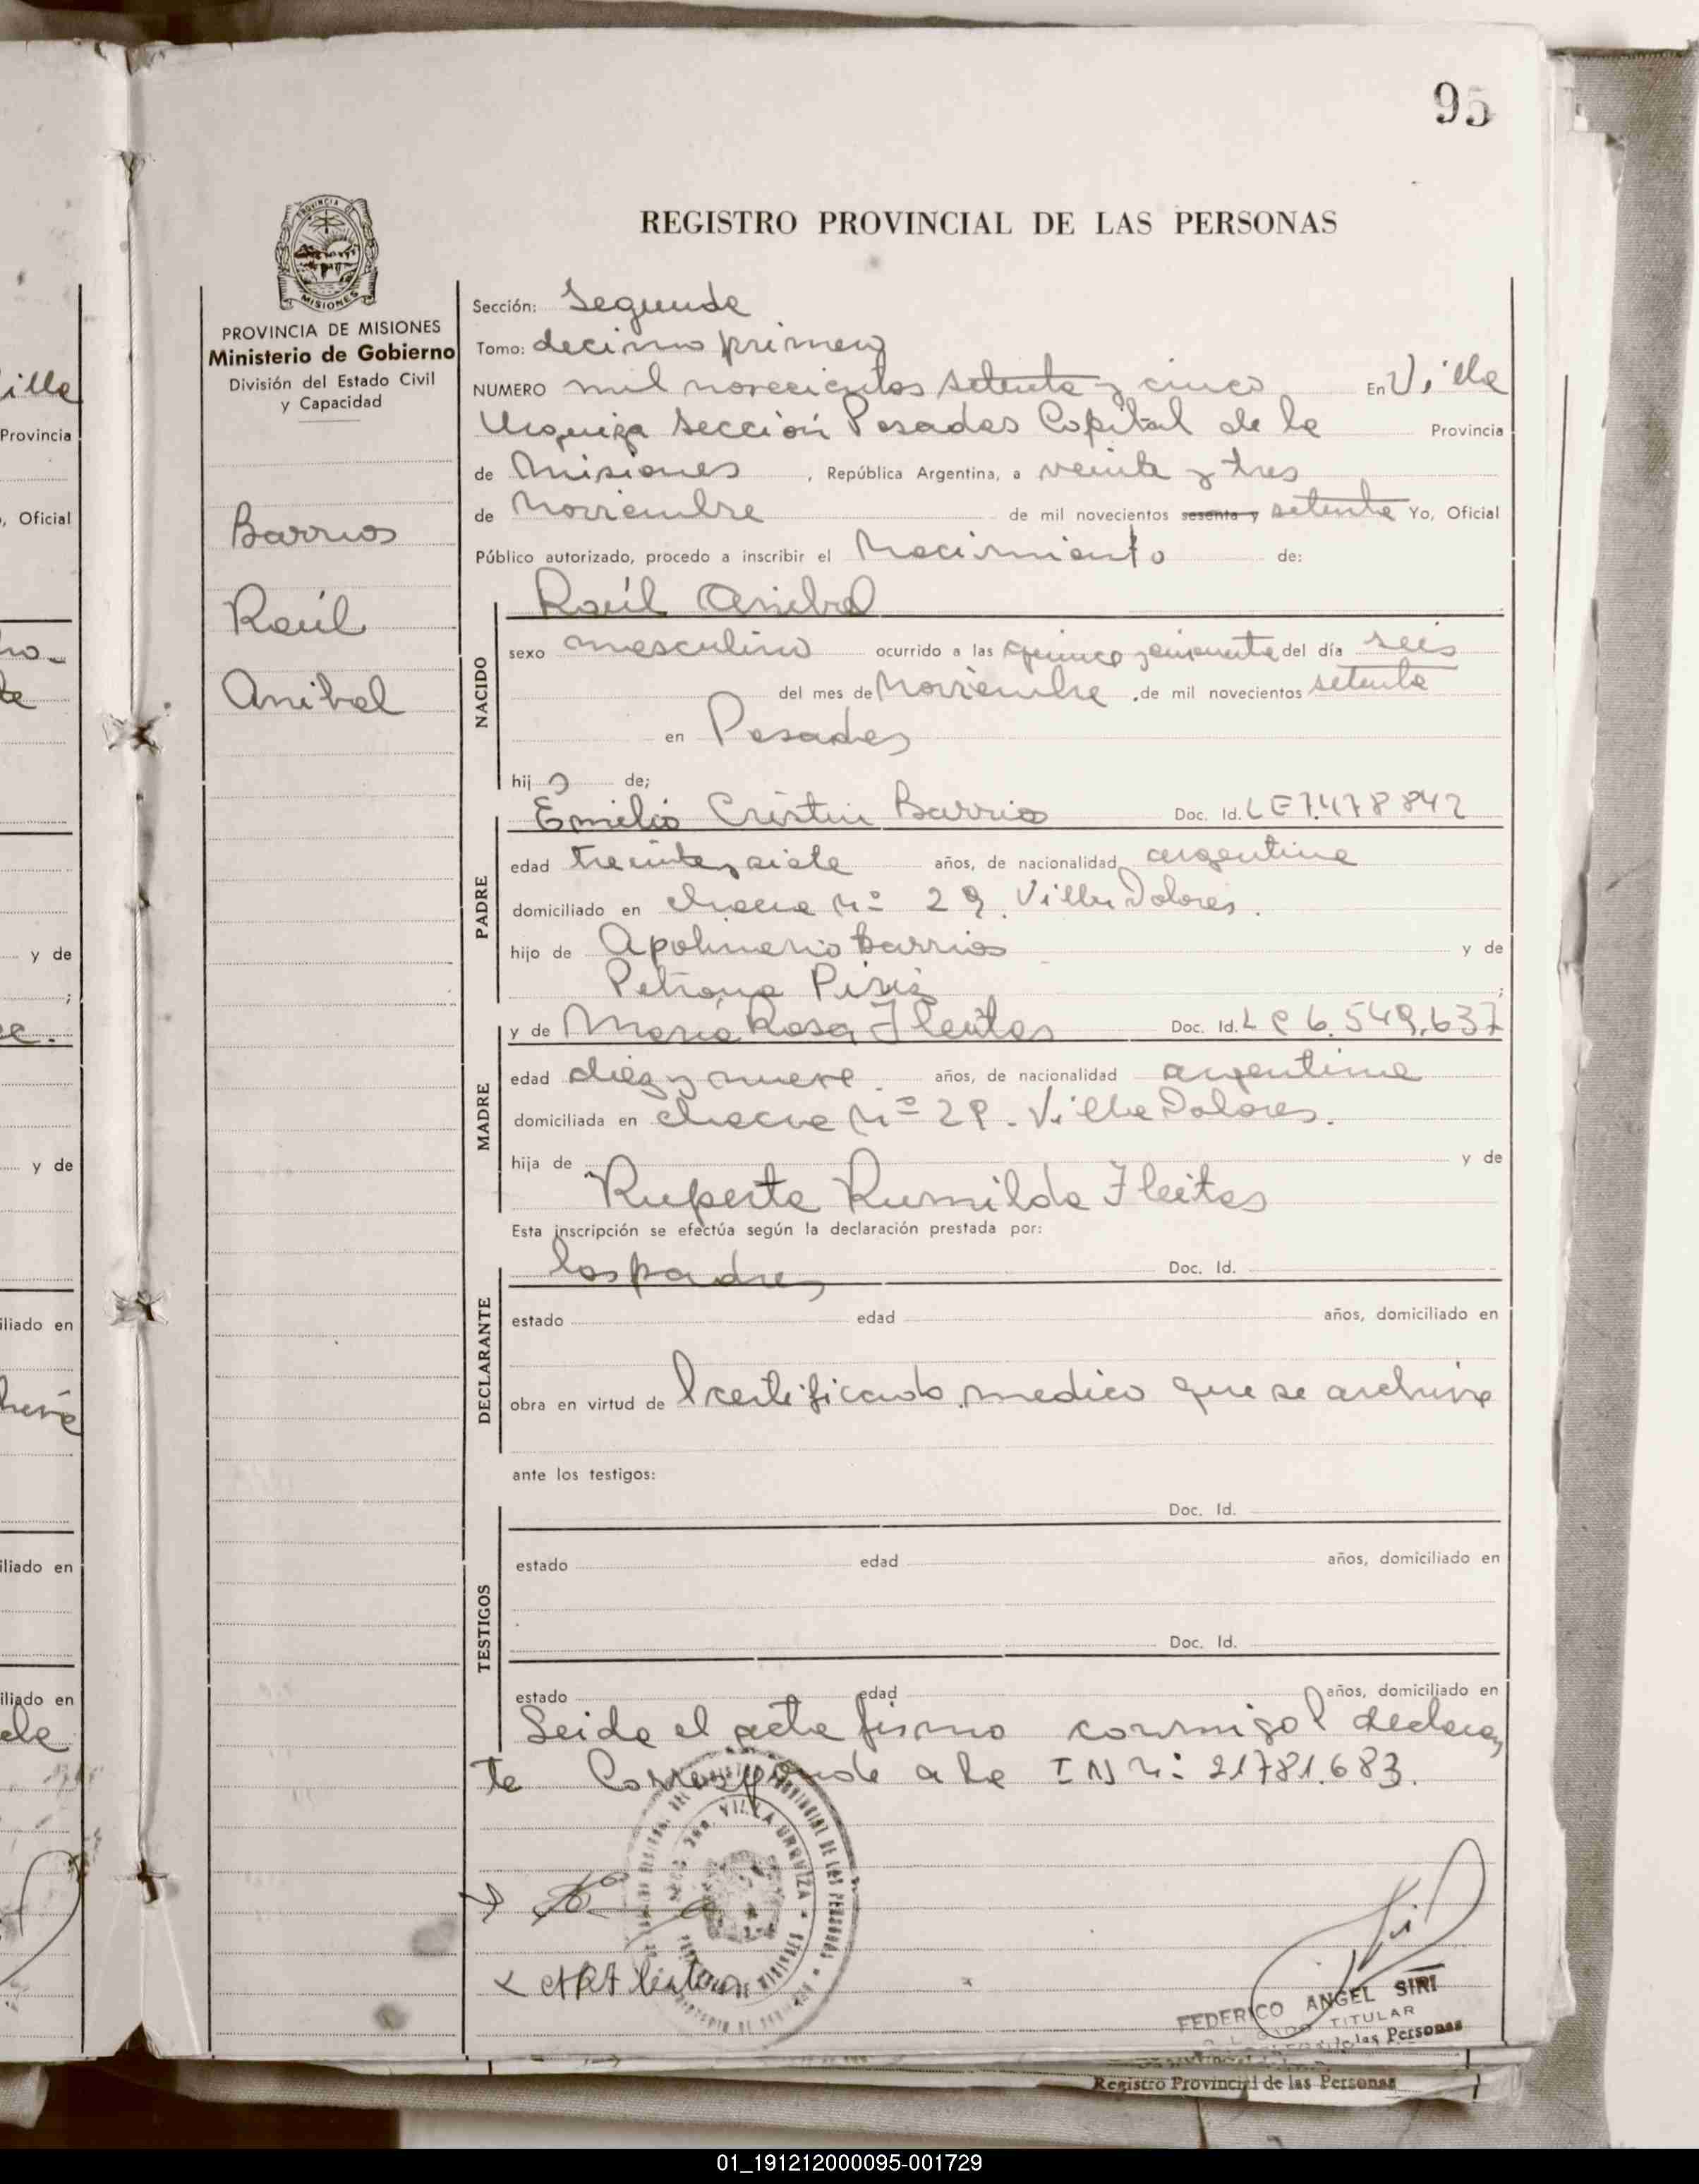 95
REGISTRO PROVINCIAL DE LAS PERSONAS
PROVINCIA DE MISIONES
Ministerio de Gobierno
División del Estado Civil
y Capacidad
Barrios
Raúl
Anibal
Sección: Segunda
Tomo: decimo primero
NUMERO mil novecientos setenta y cinco En Villa
Urquiza Sección Posadas Capital de la Provincia
de Misiones, República Argentina, a veinte y tres
de Noviembre de mil novecientos sesenta y setenta Yo, Oficial
Público autorizado, procedo a inscribir el Nacimiento de:
Raúl Anibal
NACIDO
sexo masculino ocurrido a las quince y cincuenta del día seis
del mes de Noviembre, de mil novecientos setenta
en Posadas
hijo de;
Emilio Barrios Doc. Id. LE 7.478842
PADRE
edad treinta y siete años, de nacionalidad argentina
domiciliado en chacra Nº 29. Villa Dolores.
hijo de Apolinario Barrios y de
Petrona ;
y de Maria Rosa Fleitas Doc. Id. L C 6.549.637
MADRE
edad diez y nueve. años, de nacionalidad argentina
domiciliada en chacra Nº 29. Villa Dolores.
hija de y de
Ruperta Rumilda Fleitas
Esta inscripción se efectúa según la declaración prestada por:
los padres Doc. Id.
DECLARANTE
estado edad años, domiciliado en
obra en virtud de certificado medico que se archiva
ante los testigos:
Doc. Id.
TESTIGOS
estado edad años, domiciliado en
Doc. Id.
estado edad años, domiciliado en
Leida el acta firma conmigo declaran
te Corresponde a la I N Nº: 21781.683.
VILLA URQUIZA
FEDERICO ANGEL SIRI
TITULAR
de las Personas
Registro Provincial de las Personas
01_191212000095-001729